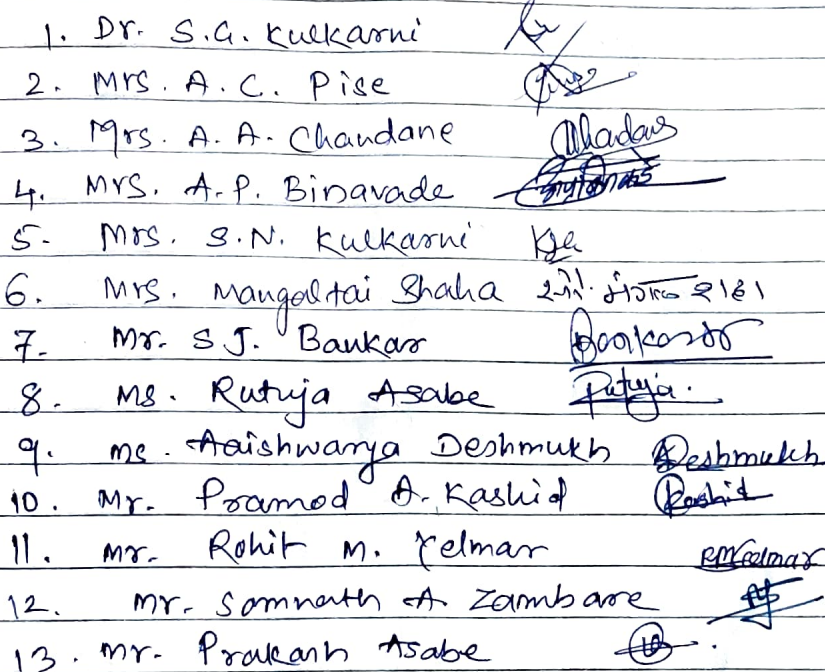 1. Dr. S.G. Kulkarni
2. Mrs. A. C. Pise
3. Mrs. A. A. Chandane
4. Mrs. A.P. Binavade
5- Mrs. S.N. Kulkarni
6. Mrs. Mangaltai Shaha सौ. मंगल शहा
7- Mr. S J. Bankar Bankar
8. Ms. Rutuja Asabe Rutuja.
9. Ms. Aaishwarya Deshmukh Deshmukh
10. Mr. Pramod A. Kashid Kashid
11. Mr. Rohit M. Yelmar RMYelmar
12. Mr. Somnath A. Zambare
13. Mr. Prakash Asabe